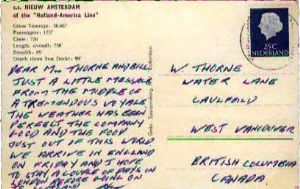 s.s. NIEUW AMSTERDAM
of the "Holland-America Line"
Gross Tonnage: 36.667
Passengers: 1237
Crew: 736
Length, overall: 758
Breadth: 88
DEAR M. THORNE AND BILL
JUST A LITTLE MESSAGE
FROM THE MIDDLE OF
A TREMENDOUS VOYAGE
THE WEATHER HAS BEEN
PERFECT THE COMPANY
GOOD AND THE FOOD
JUST OUT OF THIS WORLD
WE ARRIVE IN ENGLAND
ON FRIDAY AND I HOPE
TO STAY A COUPLE OF DAYS IN
LONDON BEFORE GOING ON
W. THORNE
WATER LANE
CAULFEILD
WEST VANCOUVER
BRITISH COLUMBIA
CANADA
25C
NEDERLAND